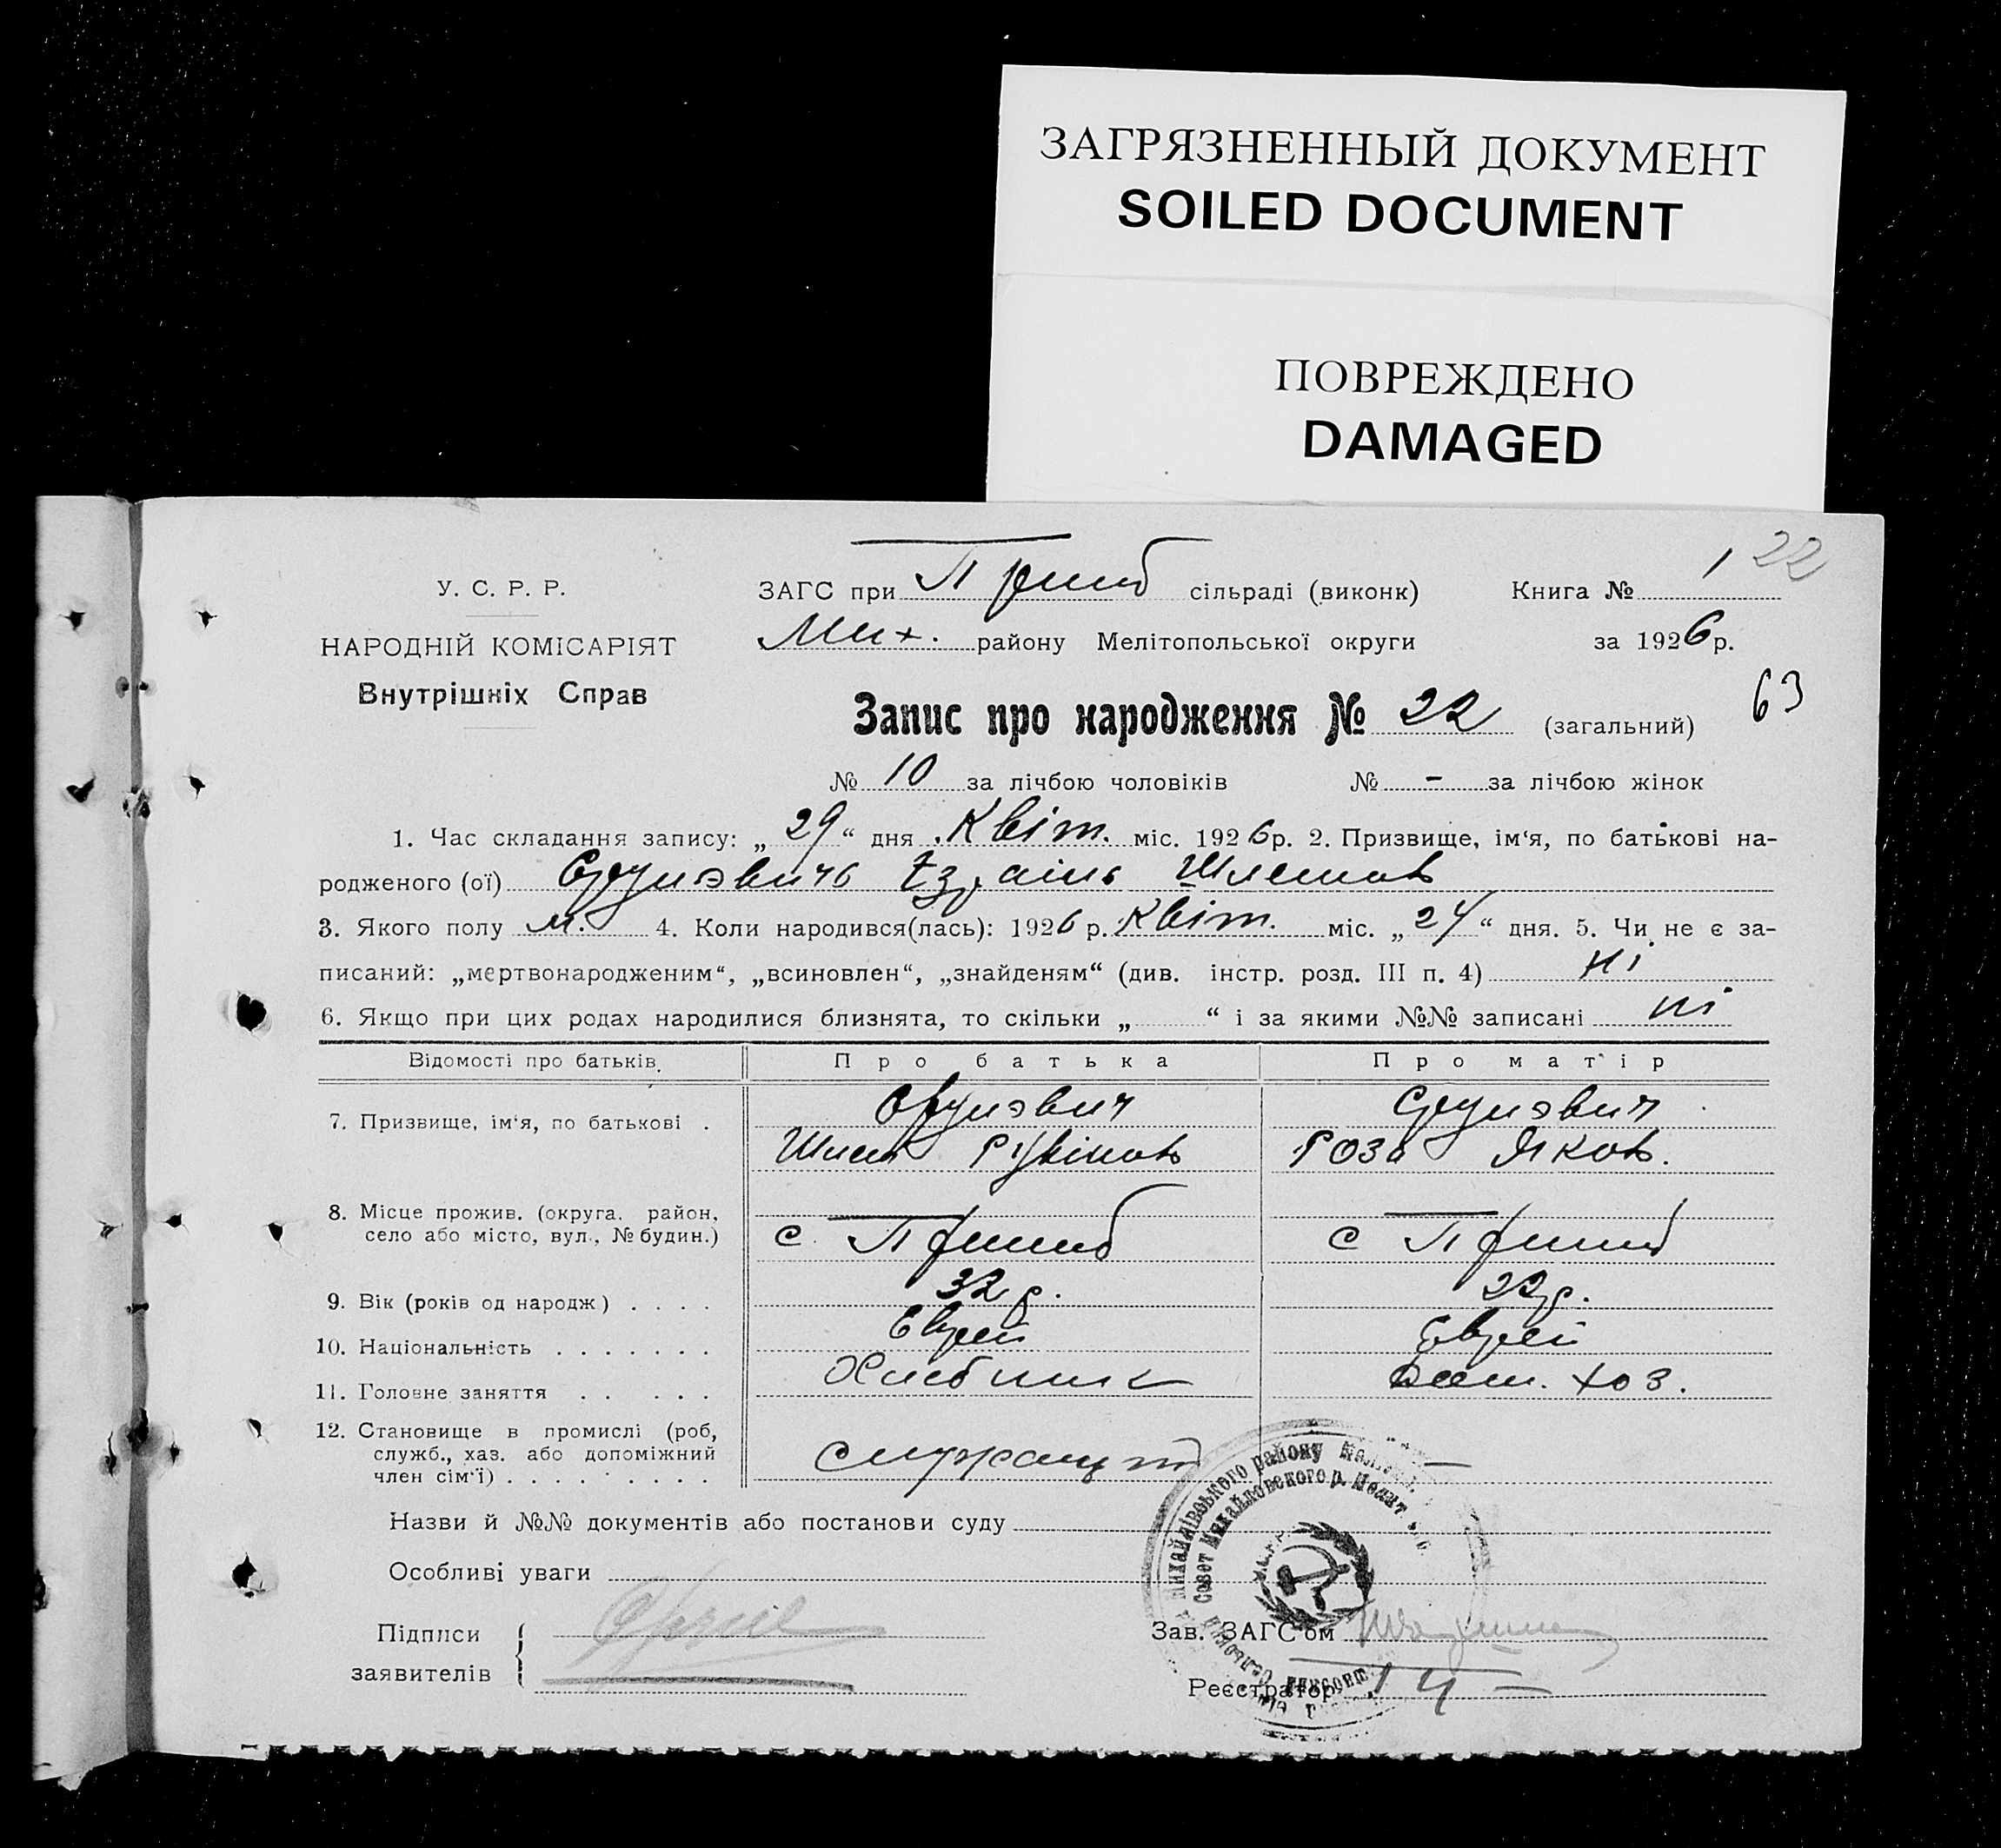 ЗАГРЯЗНЕННЫЙ ДОКУМЕНТ
SOILED DOCUMENT
ПОВРЕЖДЕНО
DAMAGED
22
У. С. Р. Р.
ЗАГС при Пришиб сільраді (виконк)
Книга № 1
НАРОДНІЙ КОМІСАРІЯТ
Мих. району Мелітопольської округи
за 1926 р.
Внутрішніх Справ
63
Запис про народження № 22 (загальний)
№ 10 за лічбою чоловіків № - за лічбою жінок
1. Час складання запису: „ 29 “ дня Квіт. міс. 1926 р. 2. Призвище, ім‘я, по батькові на-
родженого (ої) Ізраіль Шлемов
3. Якого полу м. 4. Коли народився(лась): 1926 р. Квіт. міс. „ 24 “ дня. 5. Чи не є за-
писаний: „мертвонародженим“, „всиновлен“, „знайденям“ (див. інстр. розд. III п. 4) ні
6. Якщо при цих родах народилися близнята, то скільки „ “ і за якими №№ записані ні
Відомості про батьків. Про батька Про матір
7. Призвище, ім‘я, по батькові .
Шлем Рувінов Роза Яков.
8. Місце прожив. (округа. район,
село або місто, вул., № будин.) с. Пришиб с Пришиб
9. Вік (років од народж) . . . . 32 р. 22 р.
10. Національність . . . . . . . Еврей Еврей
11. Головне заняття . . . . . Хлебник Дом. хоз.
12. Становище в промислі (роб,
служб., хаз. або допоміжний
член сім‘ї) . . . . . . . . . —
Назви й №№ документів або постанови суду
Особливі уваги
Підписи
заявителів
Зав. ЗАГС‘ом
Реєстратор
Михайлівського району
Совет Михайловского р. Мелит.